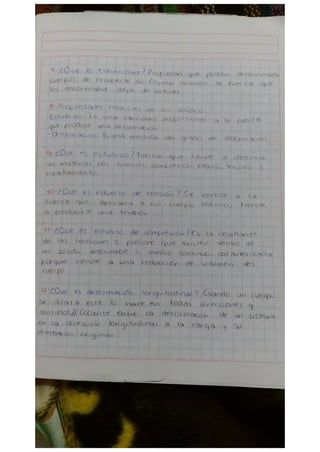 7-¿Que es Elasticidad? Propiedad que poseen determinados
cuerpos de recuperar su forma cuando la fuerza que
los deformaba deja de actuar
8-Propiedades elasticas de los solidos
Esfuerzo: Es una cantidad proporcional a la fuerza
que produce una deformación
-Deformación: Es una medida del grado de deformación
9-¿Que es esfuerzo? Fuerza que tiende a deformar
un material por tracción, compresión, flexión, torsión o
cizallamiento
10-¿Que es esfuerzo de tensión? Se conoce a la
fuerza que aplicada a un cuerpo elastico tiende
a producir una tensión
11-¿Que es esfuerzo de compresión? Es la resultante
de las tensiones o presione que existen dentro de
un sólido deformable o medio continuo, caracterizarla
porque tiende a una reducción de volumen del
cuerpo
12-¿Que es deformación longitudinal? Cuando un cuerpo
se dilata este lo hace en todas direcciones y
sentidos // Cociente entre la deformación de un sistema
en la dirección longitudinal a la carga y su
dimensión original